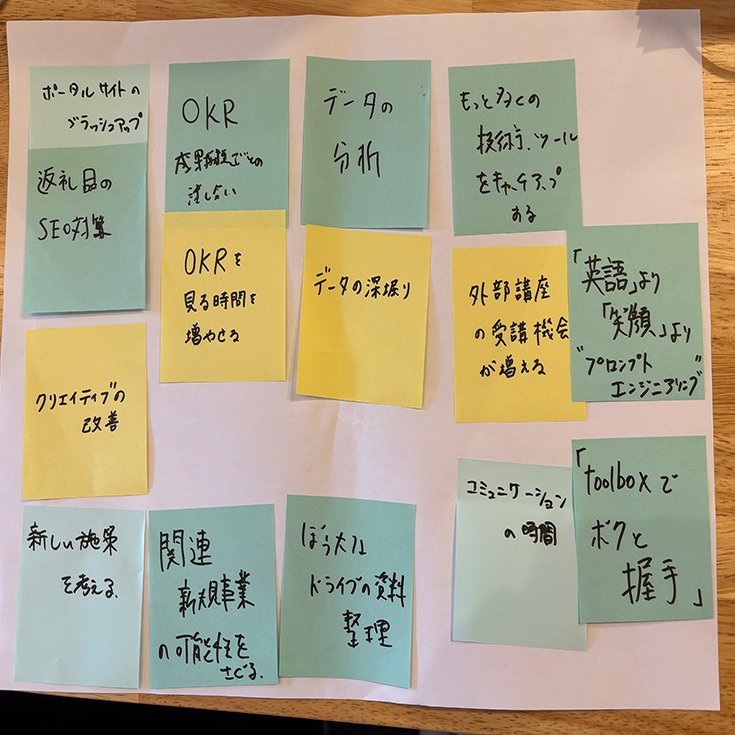 ポータルサイトの
ブラッシュアップ
返礼品の
SEO対策
OKR
成果指標ごとの
話し合い
OKRを
見る時間を
増やせる
データの
分析
データの深堀り
もっと多くの
技術、ツール
をキャッチアップ
する
外部講座
の受講機会
が増える
「英語」より
「笑顔」より
"プロンプト
エンジニアリング"
クリエイティブの
改善
新しい施策
を考える、
関連
新規事業
の可能性を
さぐる。
ぼう大な
ドライブの資料
整理
コミュニケーション
の時間
「toolboxで
ボクと
握手」